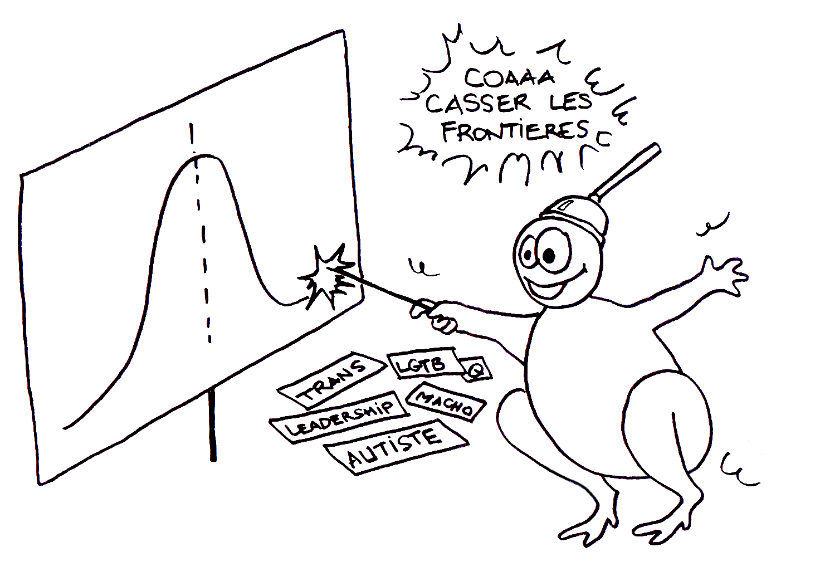 COAAA
CASSER LES
FRONTIERES
TRANS
LGTB
Q
LEADERSHIP
MACHO
AUTISTE